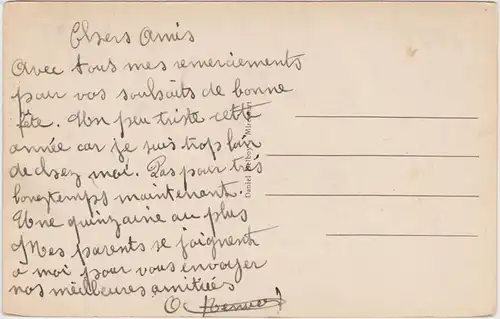 Chers Amis
Avec tous mes remerciements
pour vos souhaits de bonne
fête. Un peu triste cette
année car je suis trop loin
de chez moi. Pas pour très
longtemps maintenant.
Une quinzaine au plus
Mes parents se joignent
à moi pour vous envoyer
nos meilleures amitiés
O.
Daniel